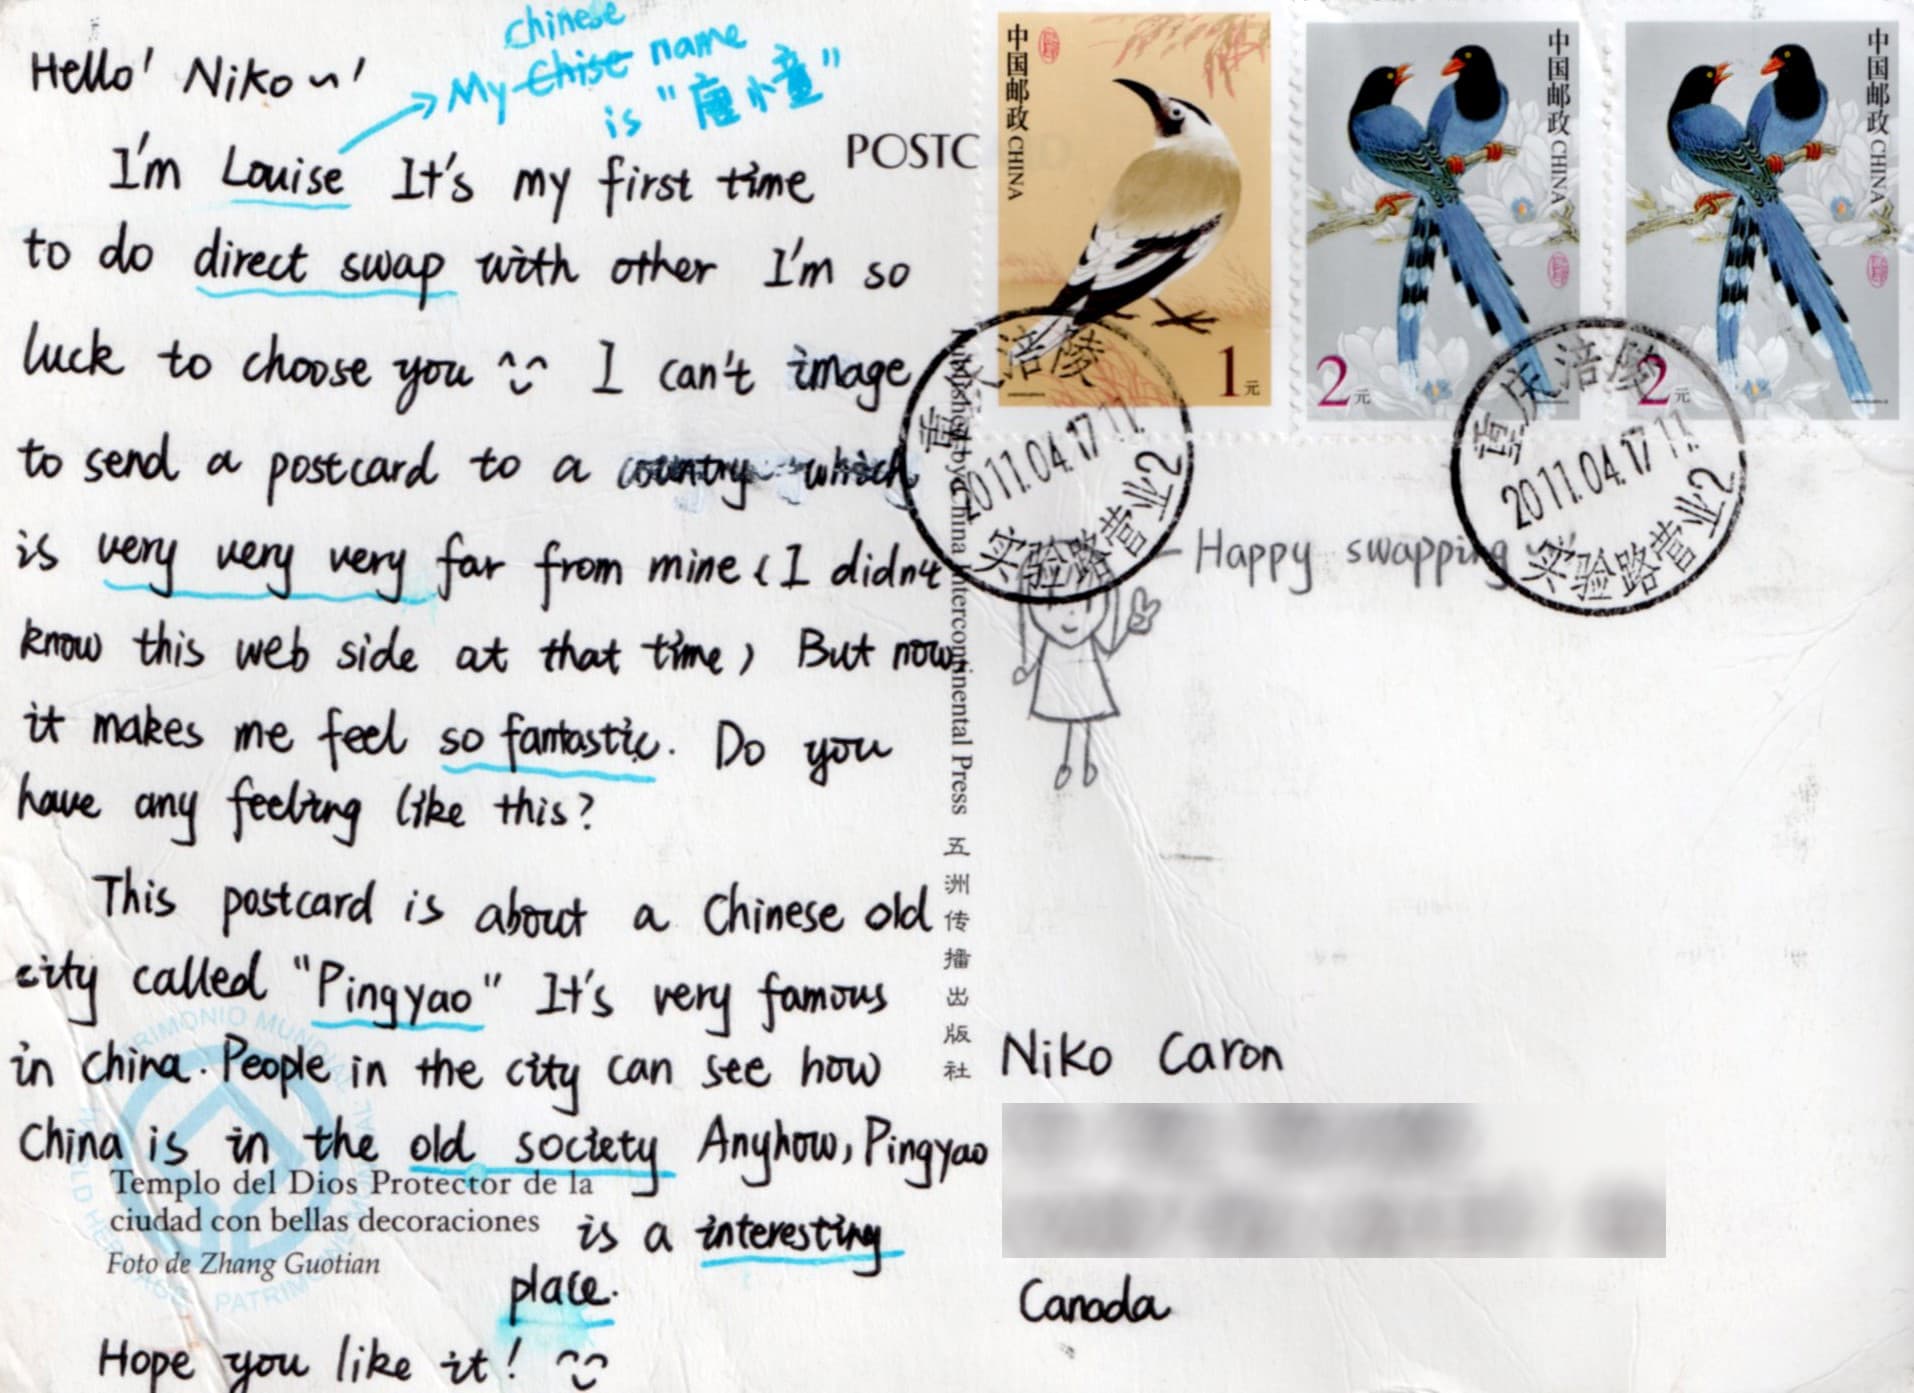 Hello! Niko~!
chinese
My Chise name
is "唐小童"
I'm Louise It's my first time
to do direct swap with other I'm so
luck to choose you ^^ I can't image
to send a postcard to a country which
is very very very far from mine (I didn't
know this web side at that time) But now
it makes me feel so fantastic. Do you
have any feeling like this?
This postcard is about a Chinese old
city called "Pingyao" It's very famous
in china. People in the city can see how
China is in the old society Anyhow, Pingyao
is a interesting
place.
Hope you like it! ^^
Templo del Dios Protector de la
ciudad con bellas decoraciones
Foto de Zhang Guotian
PATRIMONIO MUNDIAL
WORLD HERITAGE
PATRIMOINE MONDIAL
POSTCARD
Published by China Intercontinental Press 五洲传播出版社
中国邮政 CHINA
1元
中国邮政 CHINA
2元
中国邮政 CHINA
2元
涪陵
2011.04.17 11
实验路营业2
重庆涪陵
2011.04.17 11
实验路营业2
Happy swapping
Niko Caron
Canada